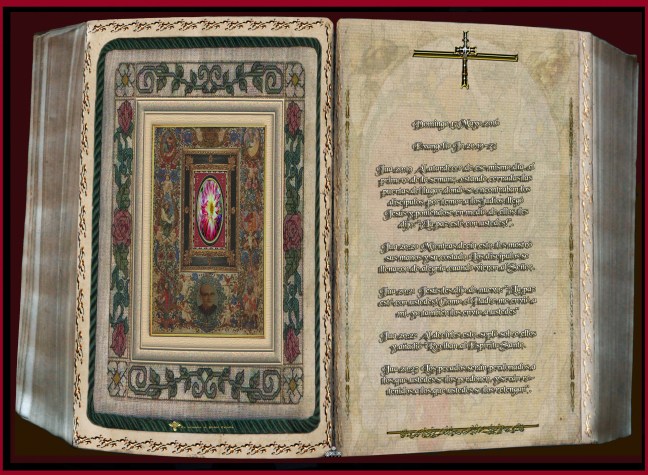 Domingo 15 Mayo 2016
Evangelio Jn 20,19-23
Jua 20:19 Al atardecer de ese mismo día, el
primero de la semana, estando cerradas las
puertas del lugar donde se encontraban los
discípulos, por temor a los judíos, llegó
Jesús y poniéndose en medio de ellos, les
dijo: "¡La paz esté con ustedes!".
Jua 20:20 Mientras decía esto, les mostró
sus manos y su costado. Los discípulos se
llenaron de alegría cuando vieron al Señor.
Jua 20:21 Jesús les dijo de nuevo: "¡La paz
esté con ustedes! Como el Padre me envió a
mí, yo también los envío a ustedes"
Jua 20:22 Al decirles esto, sopló sobre ellos
y añadió: "Reciban al Espíritu Santo.
Jua 20:23 Los pecados serán perdonados a
los que ustedes se los perdonen, y serán re-
tenidos a los que ustedes se los retengan".